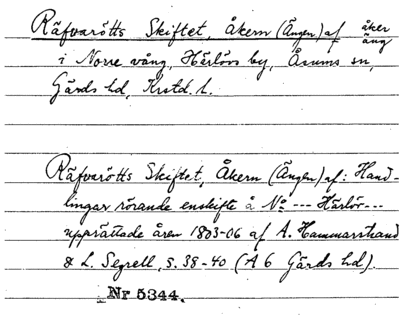 Räfvarötts Skiftet, Åkern (Ängen) af åker äng
i Norre vång, Härlövs by, Åsums sn,
Gärds hd, Krstd. l.
Räfvarötts Skiftet, Åkern (Ängen) af: Hand-
lingar rörande enskifte å No --- Härlöv---
upprättade åren 1803-06 af A. Hammarstrand
& L. Segrell, s. 38-40 (A 6 Gärds hd).
Nr 5344.